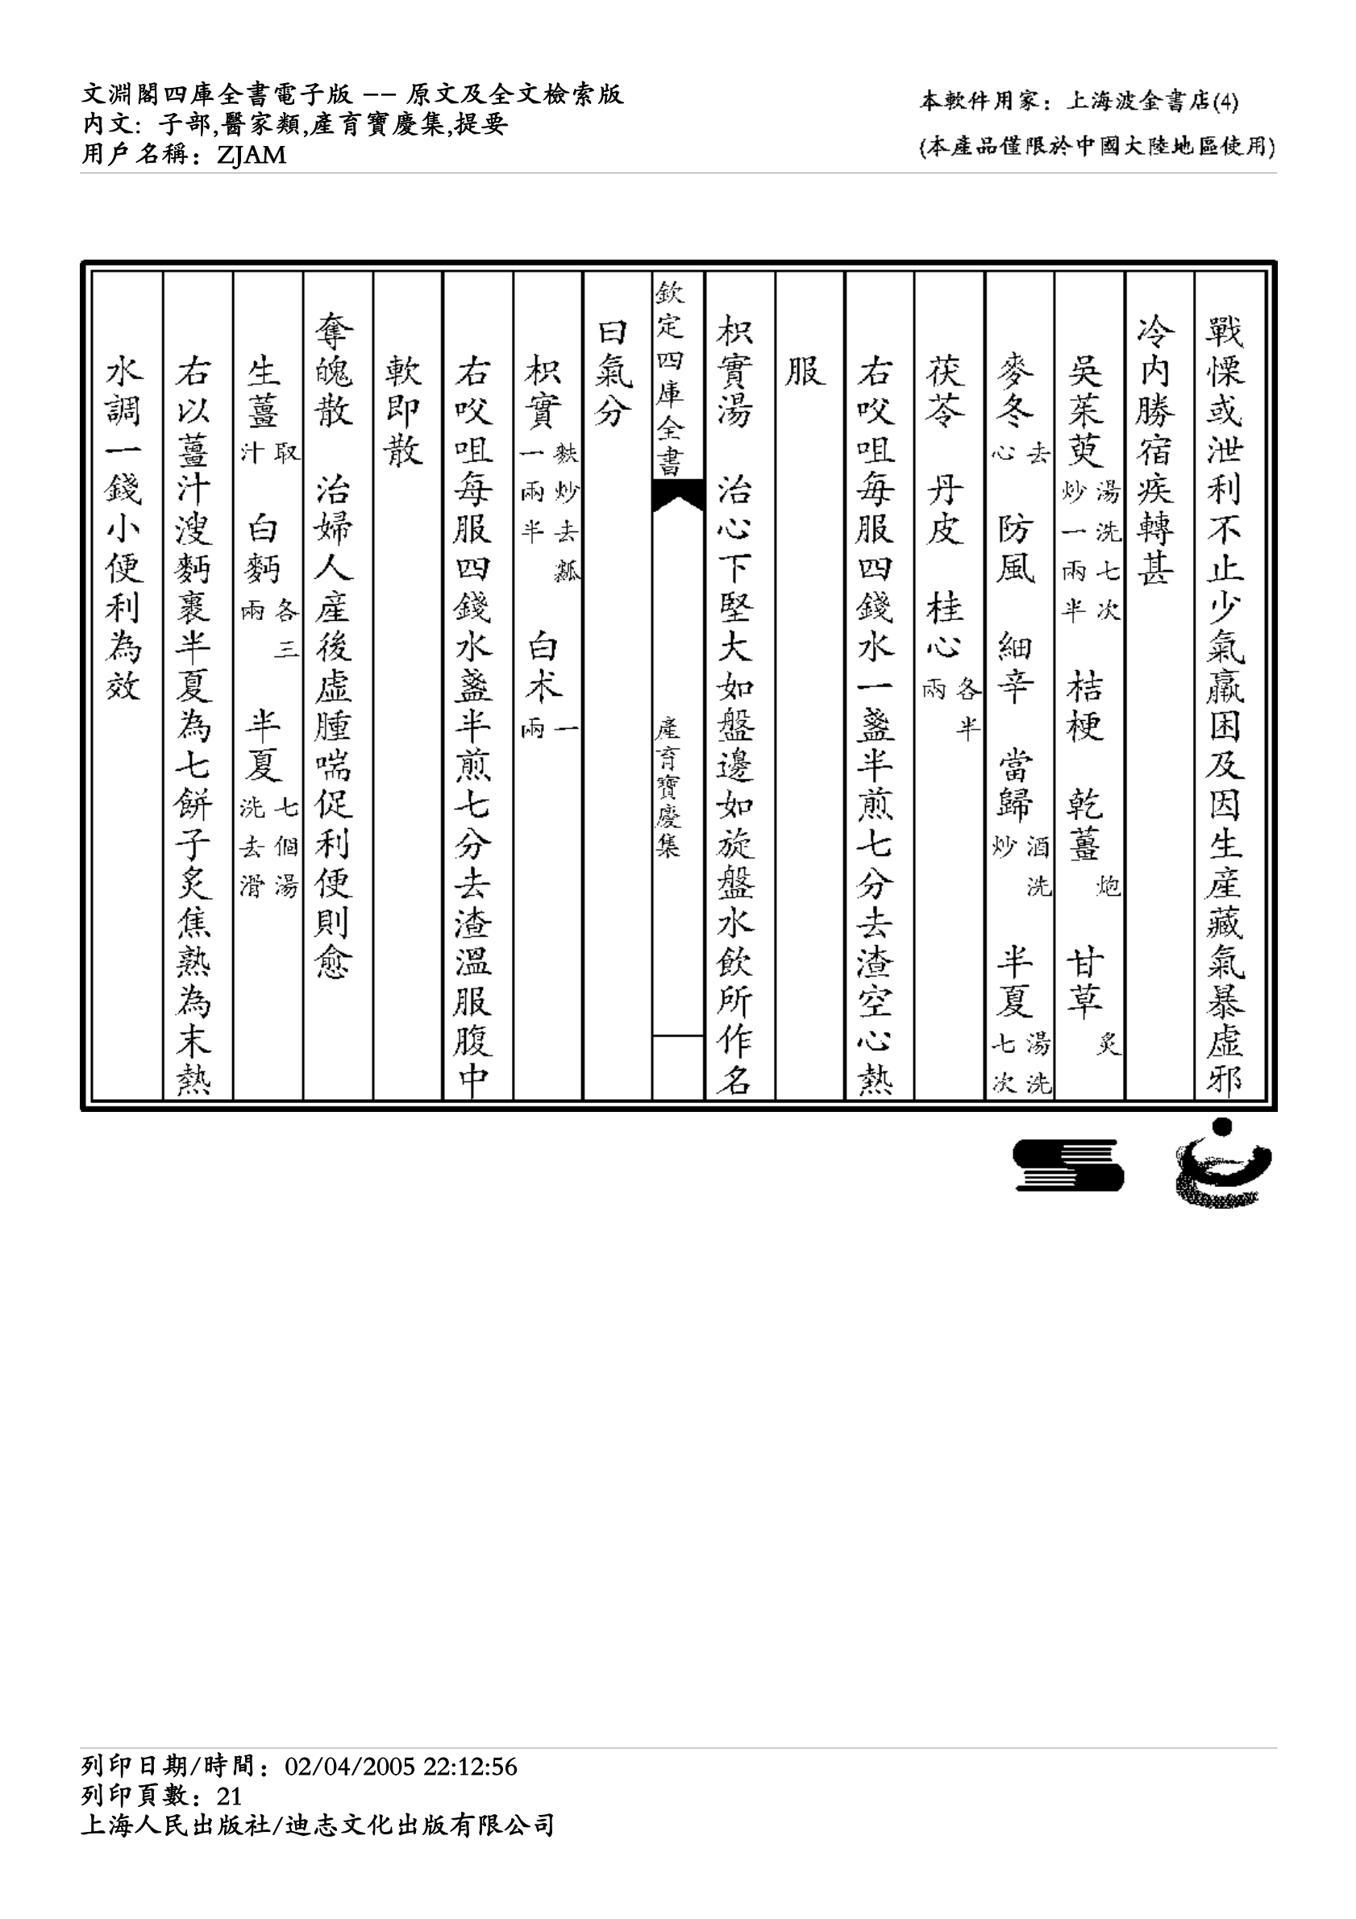 文淵閣四庫全書電子版 −− 原文及全文檢索版
内文: 子部,醫家類,產育寶慶集,提要
用戶名稱：ZJAM
本軟件用家：上海波金書店(4)
(本產品僅限於中國大陸地區使用)
戰慄或泄利不止少氣羸困及因生産藏氣暴虛邪
冷内勝宿疾轉甚
吳茱萸湯洗七次炒一兩半 桔梗 乾薑炮 甘草炙
麥冬去心 防風 細辛 當歸酒洗炒 半夏湯洗七次
茯苓 丹皮 桂心各半兩
右㕮咀每服四錢水一盞半煎七分去渣空心熱
服
枳實湯 治心下堅大如盤邊如旋盤水飲所作名
欽定四庫全書 產育寶慶集
曰氣分
枳實麩炒去瓤一兩半 白术一兩
右㕮咀每服四錢水盞半煎七分去渣溫服腹中
軟即散
奪魄散 治婦人産後虛腫喘促利便則愈
生薑取汁 白麪各三兩 半夏七個湯洗去滑
右以薑汁溲麪裹半夏為七餅子炙焦熟為末熱
水調一錢小便利為效
列印日期/時間：02/04/2005 22:12:56
列印頁數：21
上海人民出版社/迪志文化出版有限公司